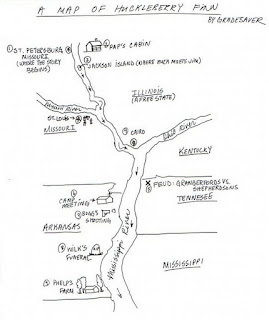 A MAP OF HUCKLEBERRY FINN
BY GRADESAVER
① ST. PETERSBURG
MISSOURI
(WHERE THE STORY
BEGINS)
② PAP'S CABIN
③ JACKSON ISLAND (WHERE HUCK MEETS JIM)
ILLINOIS
(A FREE STATE)
ST. LOUIS
MISSOURI
CAIRO
OHIO RIVER
KENTUCKY
CAMP
MEETING
FEUD: GRANGERFORDS VS.
SHEPHERDSONS
TENNESEE
BOGGS'
SHOOTING
ARKANSAS
WILK'S
FUNERAL
MISSISSIPPI RIVER
MISSISSIPPI
PHELPS
FARM